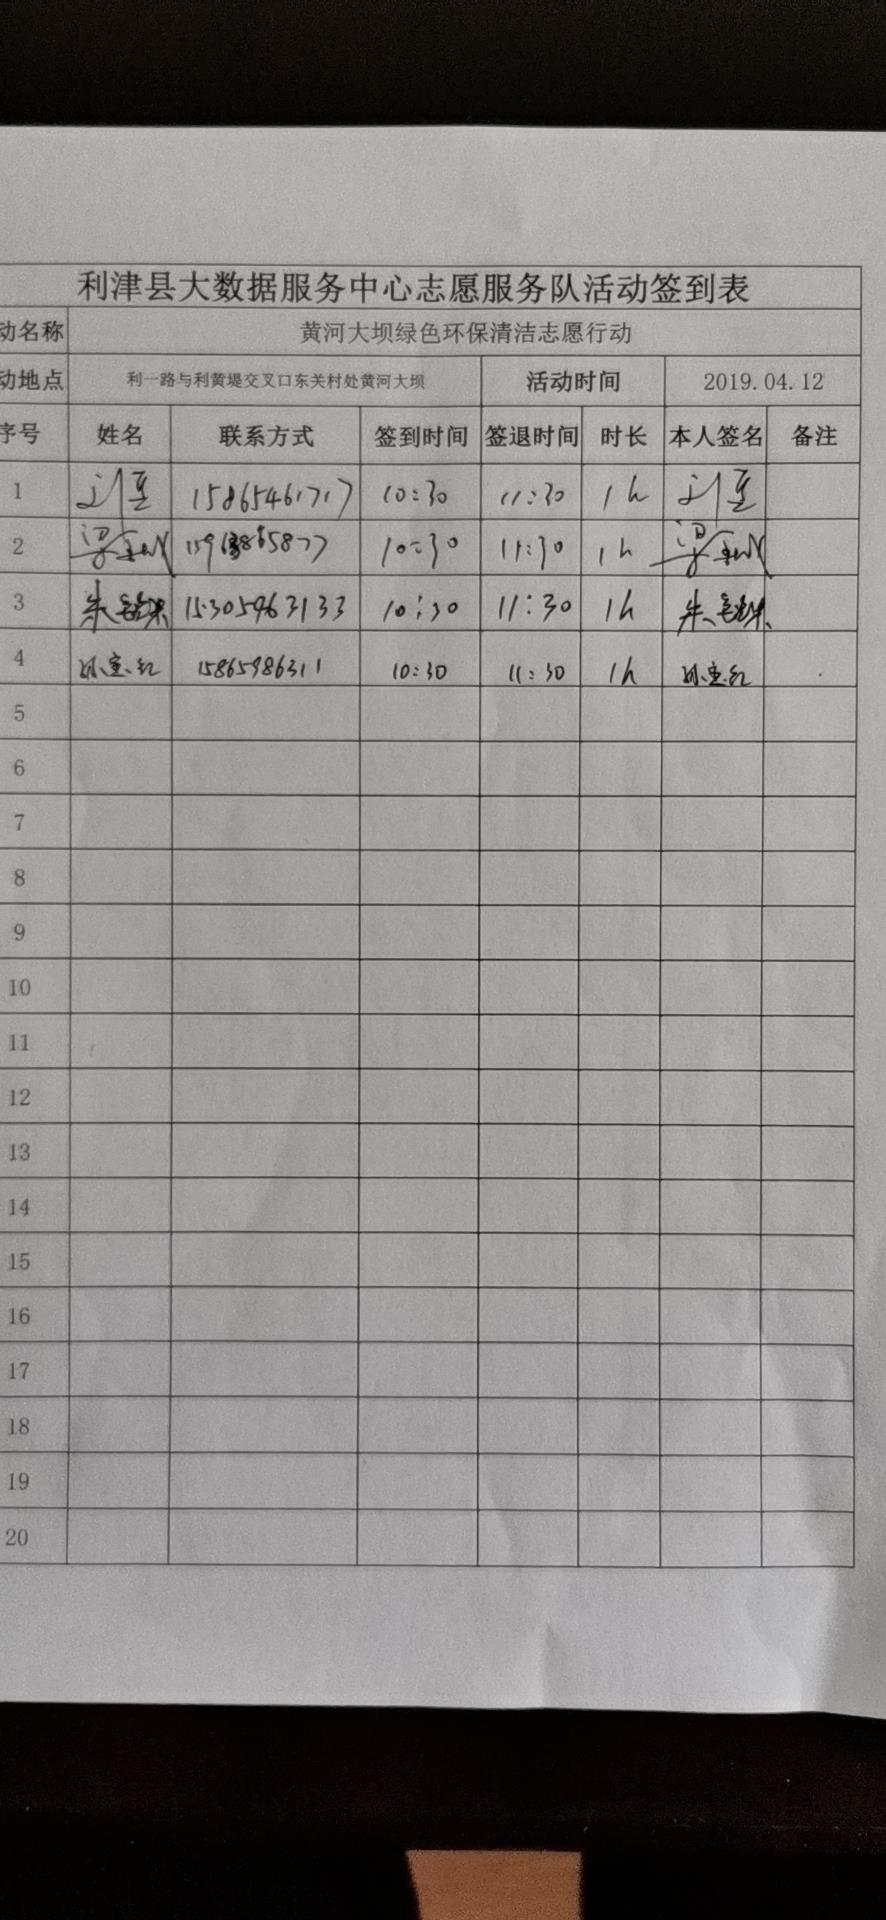 利津县大数据服务中心志愿服务队活动签到表
动名称 黄河大坝绿色环保清洁志愿行动
动地点 利一路与利黄堤交叉口东关村处黄河大坝 活动时间 2019.04.12
序号 姓名 联系方式 签到时间 签退时间 时长 本人签名 备注
1 15865461717 10:30 11:30 1h
2 10:30 11:30 1h
3 朱 15305463133 10:30 11:30 1h 朱
4 15865986311 10:30 11:30 1h
5
6
7
8
9
10
11
12
13
14
15
16
17
18
19
20